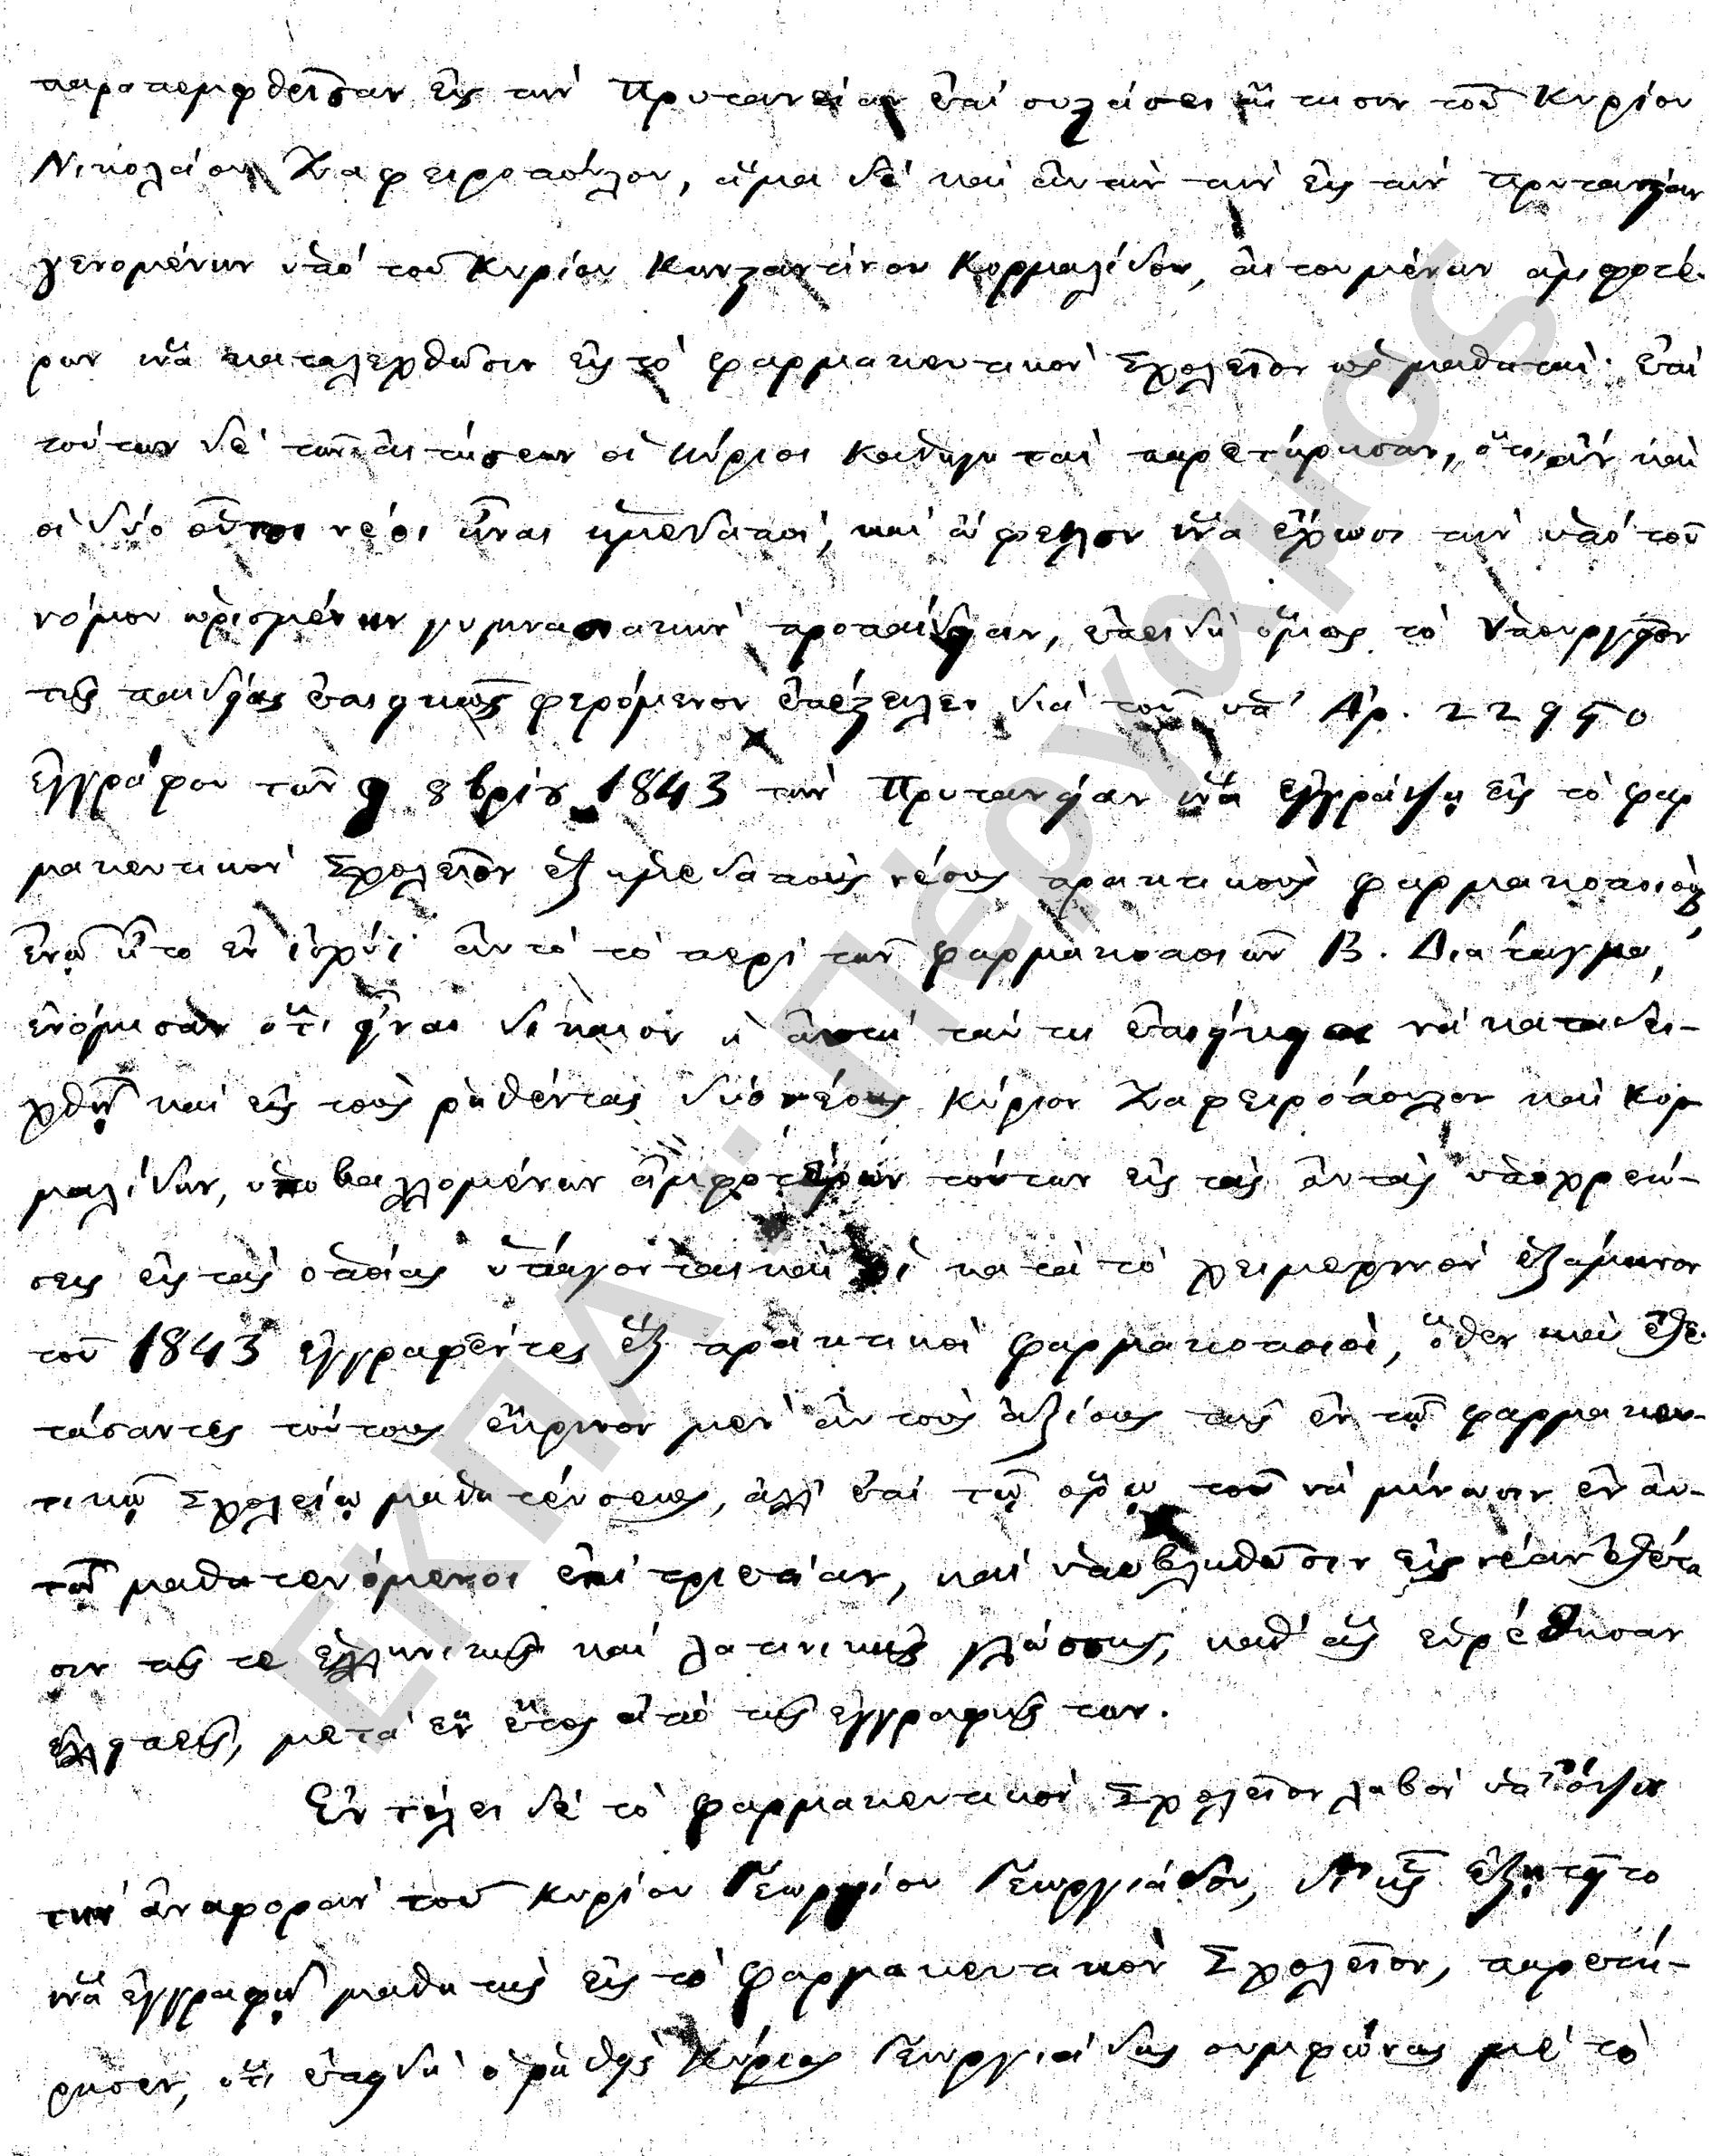 παραπεμφθεῖσαν εἰς τὴν Πρυτανείαν ἐπὶ συζεύσει αἴτησιν τοῦ Κυρίου
Νικολάου Ζαφειροπούλου, ἅμα δὲ καὶ αὐτὴν τὴν εἰς τὴν πρυτανείαν
γενομένην ὑπὸ τοῦ Κυρίου Κωνσταντίνου Κορμαλίδου, αἰτουμένων ἀμφοτέ-
ρων ἵνα καταλεχθῶσιν εἰς τὸ φαρμακευτικὸν Σχολεῖον ὡς μαθηταὶ· ἐπὶ
τούτων δὲ τῶν αἰτήσεων οἱ κύριοι Καθηγηταὶ παρετήρησαν, ὅτι, ἂν καὶ
οἱ δύο οὗτοι νέοι εἶναι ἡμεδαποί, καὶ ὤφειλον ἵνα ἔχωσι τὴν ὑπὸ τοῦ
νόμου ὡρισμένην γυμνασιακὴν προπαίδειαν, ἐπειδὴ ὅμως τὸ Ὑπουργεῖον
τῆς παιδείας ἐπιεικῶς φερόμενον ἐπέστειλε διὰ τοῦ ὑπ' Ἀρ. 22950
ἐγγράφου τῶν 9 8βρίου 1843 τὴν Πρυτανείαν ἵνα ἐγγράψῃ εἰς τὸ φαρ
μακευτικὸν Σχολεῖον ἓξ ἡμεδαποὺς νέους πρακτικοὺς φαρμακοποιοὺς,
ἐνῷ ἦτο ἐν ἰσχύϊ αὐτὸ τὸ περὶ τῶν φαρμακοποιῶν Β. Διάταγμα,
ἐνόμισαν ὅτι εἶναι δίκαιον ἡ αὐτὴ ταύτη ἐπιείκεια νὰ καταδει-
χθῇ καὶ εἰς τοὺς ῥηθέντας δύο νέους Κύριον Ζαφειρόπουλον καὶ Κορ
μαλίδην, ὑποβαλλομένων ἀμφοτέρων τούτων εἰς τὰς αὐτὰς ὑποχρεώ-
σεις εἰς τὰς ὁποίας ὑπάγονται καὶ οἱ κατὰ τὸ χειμερινὸν ἑξάμηνον
τοῦ 1843 ἐγγραφέντες ἓξ πρακτικοὶ φαρμακοποιοὶ, ὅθεν καὶ ἐξε-
τάσαντες τούτους εὗρον μὲν αὐτοὺς ἀξίους τῆς ἐν τῷ φαρμακευ-
τικῷ Σχολείῳ μαθητεύσεως, ἀλλ' ἐπὶ τῷ ὅρῳ τοῦ νὰ μείνωσιν ἐν αὐ-
τῷ μαθητευόμενοι ἐπὶ τριετίαν, καὶ ὑποβληθῶσιν εἰς νέαν ἐξέτα
σιν τῆς τε ἑλληνικῆς καὶ λατινικῆς γλώσσης, καθ' ἃς εὑρέθησαν
ἐλλιπεῖς, μετὰ ἓν ἔτος ἀπὸ τῆς ἐγγραφῆς των.
Ἐν τέλει δὲ τὸ φαρμακευτικὸν Σχολεῖον λαβὸν ὑπ' ὄψιν
τὴν ἀναφορὰν τοῦ κυρίου Γεωργίου Γεωργιάδου, δι' ἧς ἐζητεῖτο
ἵνα ἐγγραφῇ μαθητὴς εἰς τὸ φαρμακευτικὸν Σχολεῖον, παρετή-
ρησεν, ὅτι ἐπειδὴ ὁ ῥηθεὶς Κύριος Γεωργιάδης συμφώνως μὲ τὸ